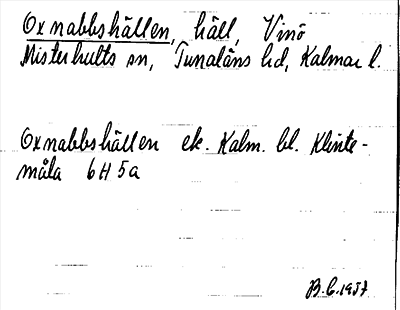 Oxnabbshällen, häll, Vinö
Misterhults sn, Tunaläns hd, Kalmar l.
Oxnabbshällen ek. Kalm. bl. Klinte-
måla 6H5a
B.C. 1957